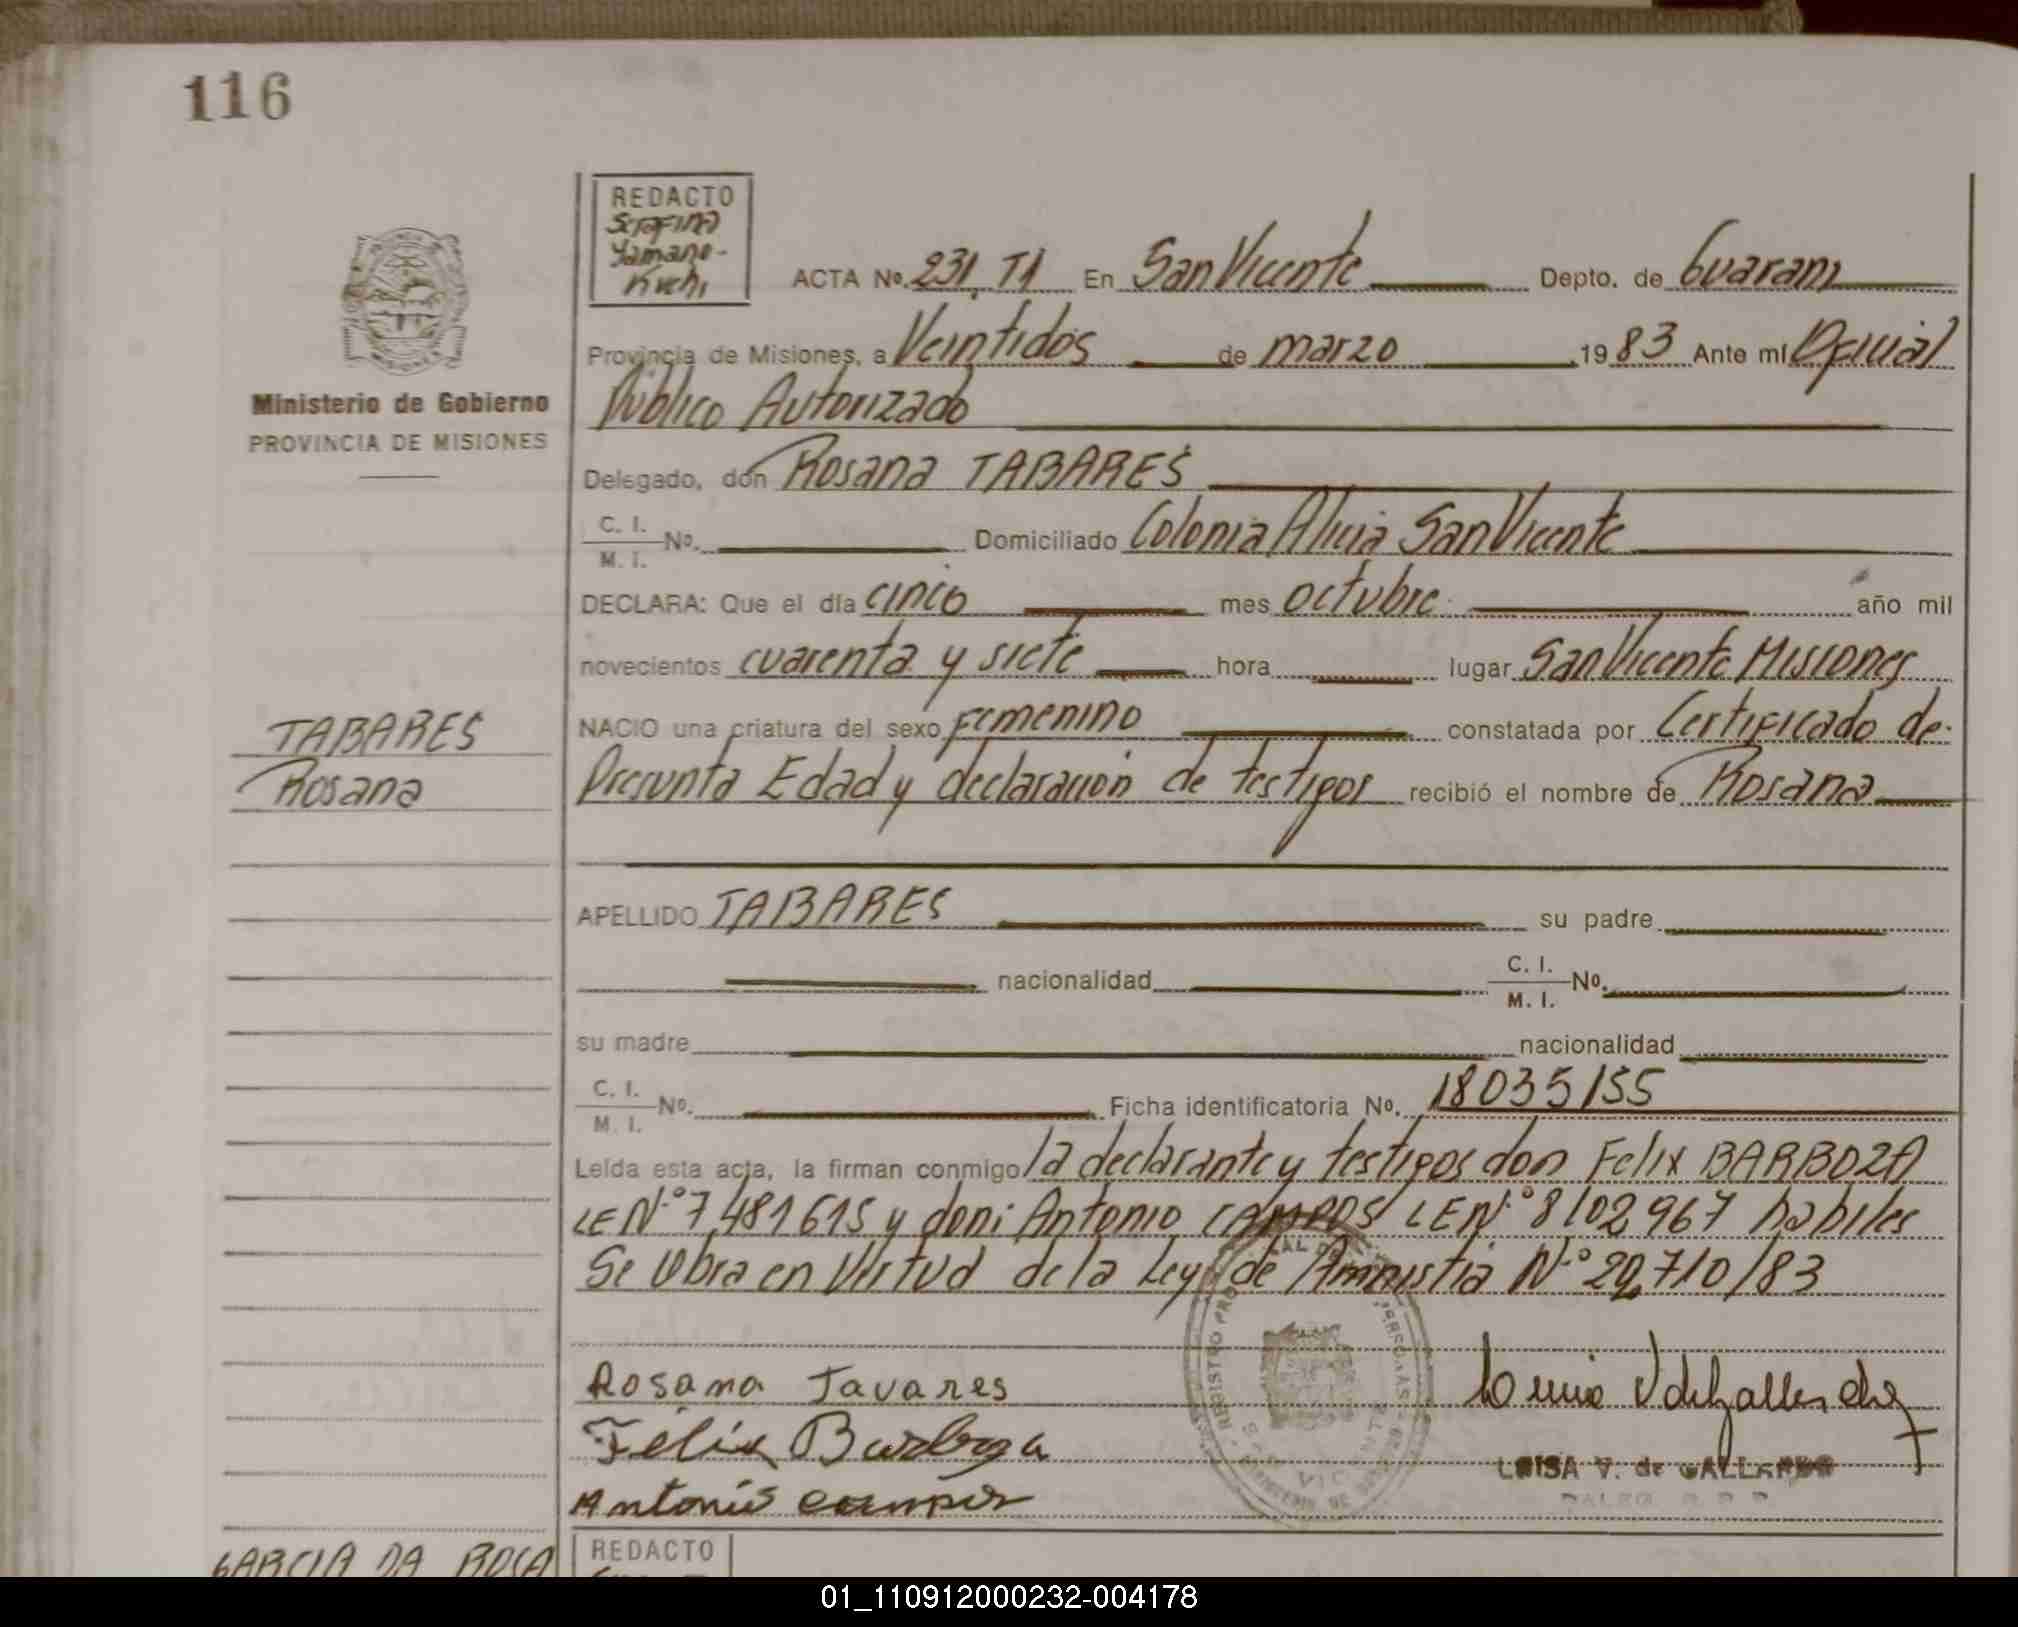 116
REDACTO
Serafina
Yamano-
Kuchi
ACTA No. 231. T1 En San Vicente Depto. de Guarani
Provincia de Misiones, a Veintidos de marzo 19 83 Ante mí Oficial
Ministerio de Gobierno
Público Autorizado
PROVINCIA DE MISIONES
Delegado, don Rosana TABARES
C. I.
M. I. No. Domiciliado Colonia Alicia San Vicente
DECLARA: Que el día cinco mes octubre año mil
novecientos cuarenta y siete hora lugar San Vicente Misiones
TABARES
NACIO una criatura del sexo femenino constatada por Certificado de
Rosana
Presunta Edad y declaración de testigos recibió el nombre de Rosana
APELLIDO TABARES su padre
nacionalidad C. I.
M. I. No.
su madre nacionalidad
C. I.
M. I. No. Ficha identificatoria No. 18035155
Leída esta acta, la firman conmigo la declarante y testigos don Felix BARBOZA
LE N° 7,481615 y don: Antonio CAMPOS LE N° 8102967 habiles
Se Obra en Virtud de la Ley de Amnistia N° 22,710/83
Rosana Tavares
Félix Barboza
LUISA V. de GALLARDO
Antonio campos
GARCIA DA ROSA
REDACTO
01_110912000232-004178